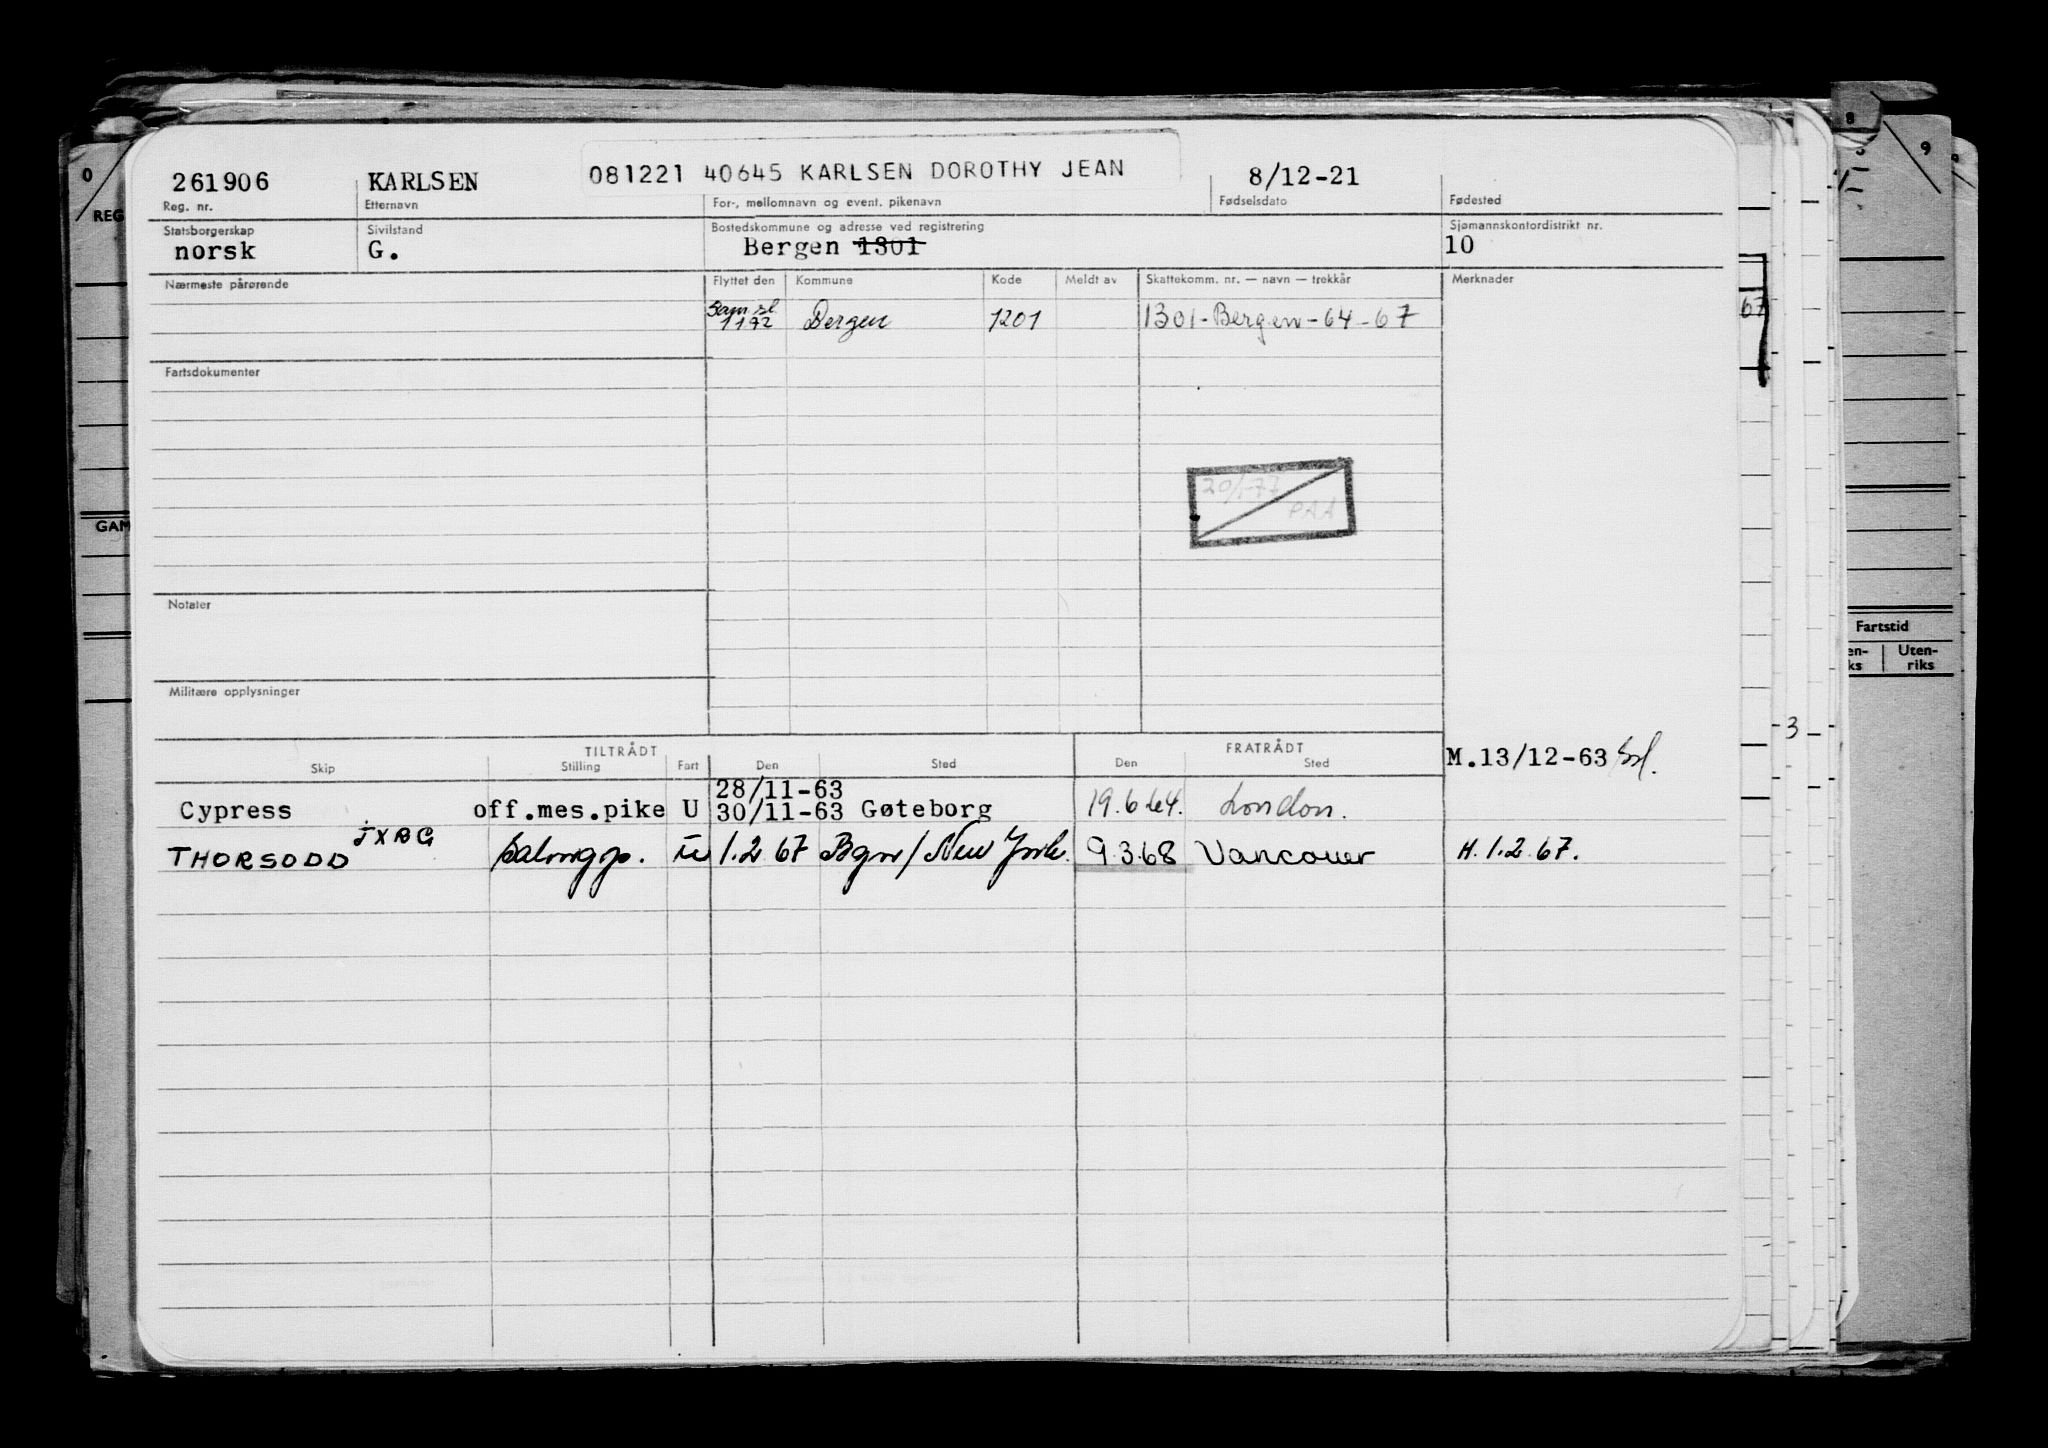 261906 KARLSEN 081221 40645 KARLSEN DOROTHY JEAN 8/12-21
Reg. nr. Etternavn For-, mellomnavn og event. pikenavn Fødselsdato Fødested
Statsborgerskap Sivilstand Bostedskommune og adresse ved registrering Sjømannskontordistrikt nr.
norsk G. Bergen 1301 10
Nærmeste pårørende Flyttet den Kommune Kode Meldt av Skattekomm. nr. — navn — trekkår Merknader
1172 Bergen 1201 1301-Bergen-64-67
Fartsdokumenter
20/1-77
PAA
Notater
Militære opplysninger
TILTRÅDT FRATRÅDT
Skip Stilling Fart Den Sted Den Sted
M.13/12-63
28/11-63
Cypress off.mes.pike U 30/11-63 Gøteborg 19.6.64. London.
JXBG
THORSODD salongp. U 1.2 67 Bgn/New York. 9.3.68 Vancouver H.1.2.67.
0
REG
GAM
8
9
67
3
Fartstid
en-
ks
Uten-
riks